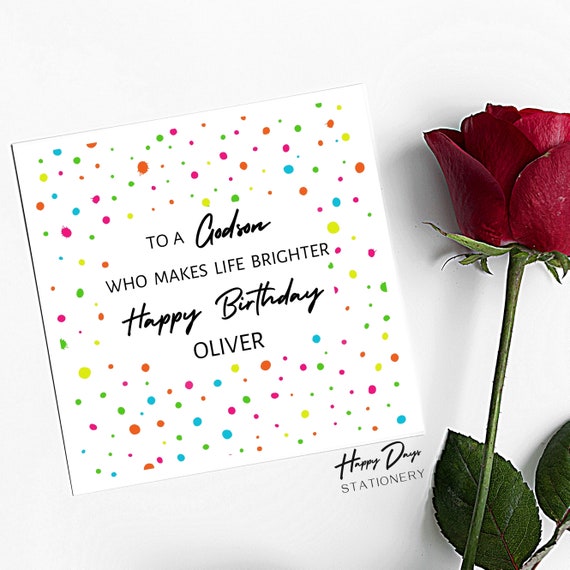 TO A Godson
WHO MAKES LIFE BRIGHTER
Happy Birthday
OLIVER
Happy Days
STATIONERY